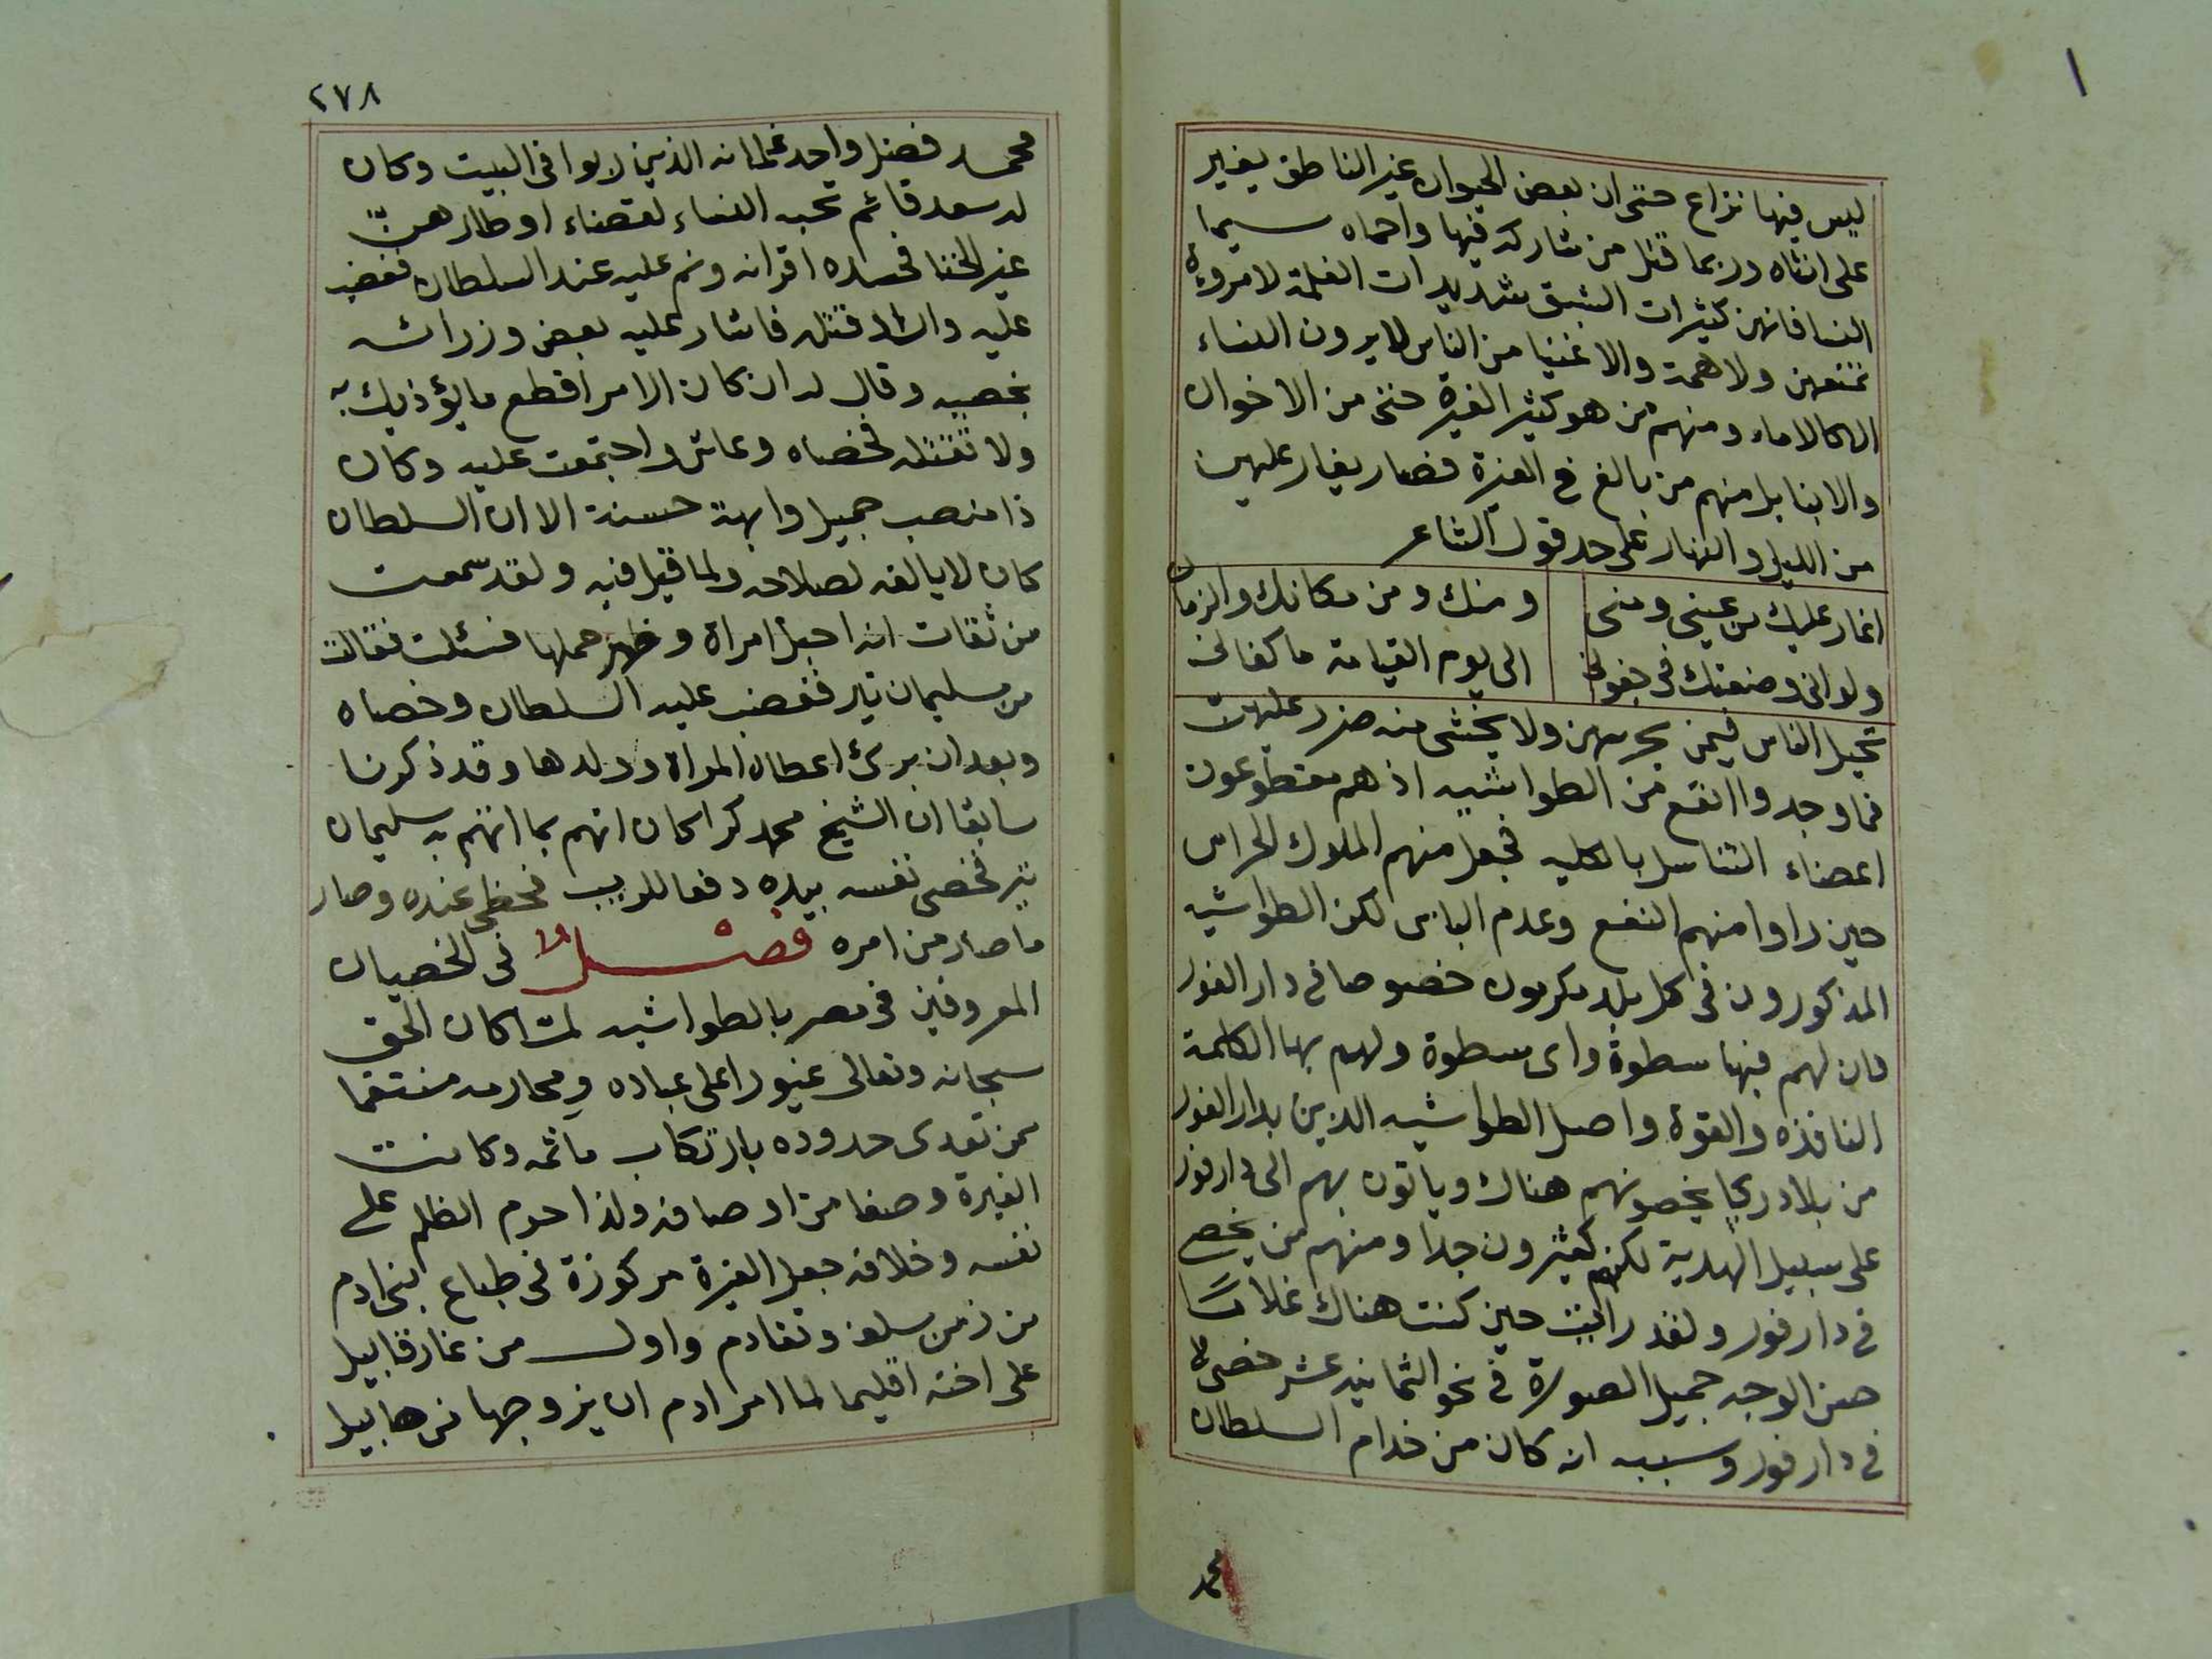 ليس فيها نزاع حتى ان بعض الحيوان غير الناطق يغير
على انثاه وربما قتل من شاركه فيها واحماه سيما
النسا فانهن كثيرات الشبق شديدات الغلمة لا مروءة
تمنعهن ولا همة والاغنيا من الناس لا يرون النساء
الا كالاماء ومنهم من هو كثير الغيرة حتى من الاخوان
والابنا بل منهم من بالغ في الغيرة فصار يغار عليهن
من الليل والنهار على حد قول الشاعر
اغار عليك من عينى ومنى ومنك ومن مكانك والزمان
ولو انى وضعتك فى جفونى الى يوم القيامة ما كفانى
تحيل الناس فيمن يحرسهن ولا يخشى منه ضرر عليهن
فما وجدوا انفع من الطواشيه اذ هم مقطوعون
اعضاء التناسل بالكليه فجعل منهم الملوك الحراس
حين راوا منهم النفع وعدم الباس لكن الطواشيه
المذكورون فى كل بلد مكرمون خصوصا فى دار الفور
فان لهم فيها سطوة واى سطوة ولهم بها الكلمة
النافذه والقوة واصل الطواشيه الذين بدار الفور
من بلاد ربحا يخصونهم هناك وياتون بهم الى دارفور
على سبيل الهدية لكنهم كثيرون جدا ومنهم من يخصى
فى دارفور ولقد رايت حين كنت هناك غلاما
حسن الوجه جميل الصورة فى نحو الثمانيه عشر خصى
فى دارفور وسببه انه كان من خدام السلطان
محمد
٢٧٨
محمد فضل واحد غلمانه الذين ربوا فى البيت وكان
له سعد قائم تحبه النساء لقضاء اوطارهن
غير الخنا فحسده اقرانه ونم عليه عند السلطان فغضب
عليه واراد قتله فاشار عليه بعض وزرائه
بخصيه وقال له ان كان الامر اقطع ما يؤذيك به
ولا تقتله فخصاه وعاش واجتمعت عليه وكان
ذا منصب جميل وابهة حسنة الا ان السلطان
كان لا يالفه لصلاحه ولما قيل فيه ولقد سمعت
من ثقات انه احبل امراة وظهر حملها فسئلت فقالت
من سليمان تير فغضب عليه السلطان وخصاه
وبعد ان برئ اعطاه المراة وولدها وقد ذكرنا
سابقا ان الشيخ محمد كرا كان اتهم بما اتهم به سليمان
تير فخصى نفسه بيده دفعا للريب فحظى عنده وصار
ما صار من امره فصل فى الخصيان
المعروفين فى مصر بالطواشيه لما كان الحق
سبحانه وتعالى غيورا على عباده ومحارمه منتقما
ممن تعدى حدوده بارتكاب ماثمه وكانت
الغيرة وصفا من اوصافه ولذا حرم الظلم على
نفسه وخلافه جعل الغيرة مركوزة فى طباع بنى ادم
من زمن سلف وتقادم واول من غار قابيل
على اخته اقليما لما امر ادم ان يزوجها من هابيل